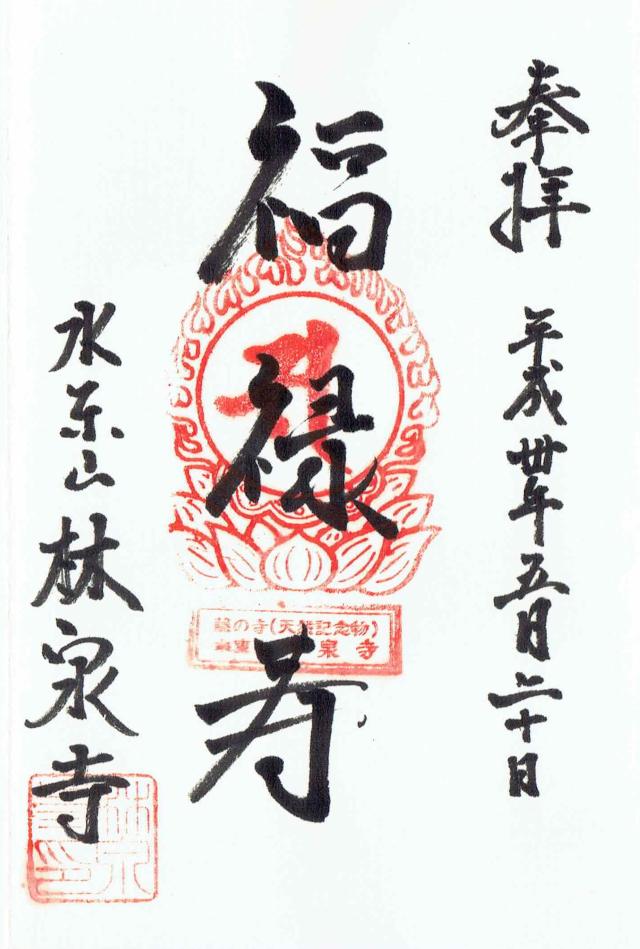 奉拝 平成卅年五月二十日
福禄寿
藤の寺(天然記念物)
泉寺
水东山 林泉寺